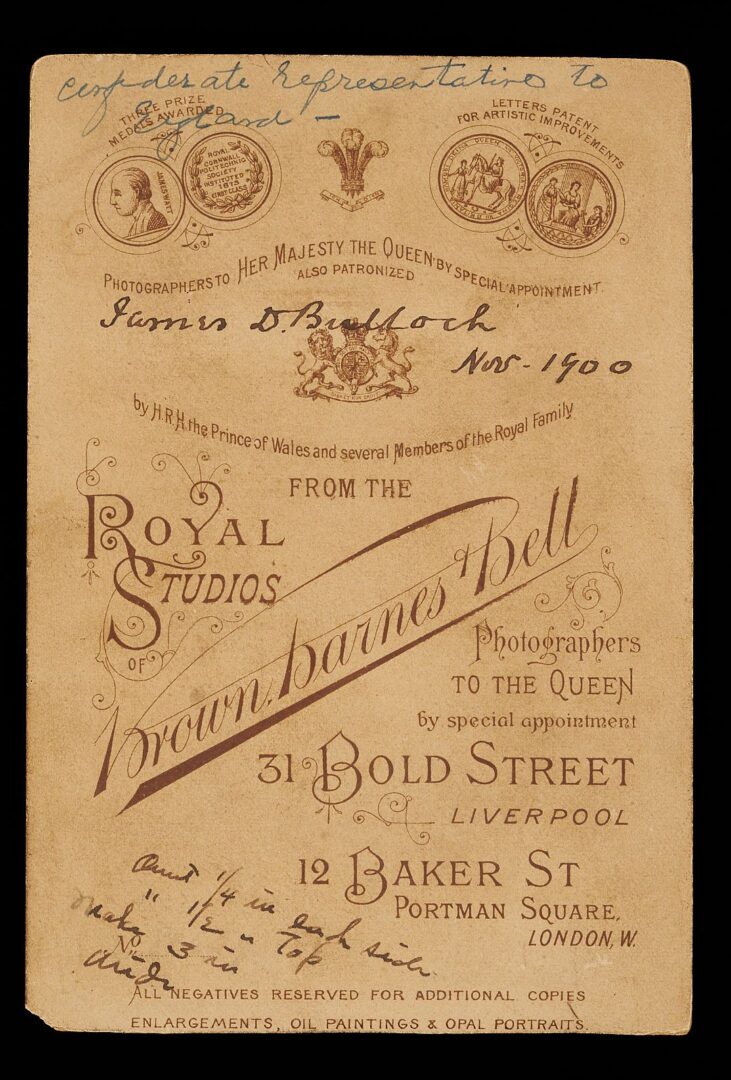 confederate representative to
England –
THREE PRIZE
MEDALS AWARDED
LETTERS PATENT
FOR ARTISTIC IMPROVEMENTS
JAMES WATT
ROYAL
CORNWALL
POLYTECHNIC
SOCIETY
INSTITUTED
1875
FIRST CLASS
PHOTOGRAPHERS TO HER MAJESTY THE QUEEN BY SPECIAL APPOINTMENT
ALSO PATRONIZED
James D. Bulloch
Nov - 1900
by H.R.H. the Prince of Wales and several Members of the Royal Family
FROM THE
ROYAL
STUDIOS
OF
Brown, Barnes & Bell
Photographers
TO THE QUEEN
by special appointment
31 BOLD STREET
LIVERPOOL
12 BAKER ST
PORTMAN SQUARE,
LONDON, W.
1/4 in each side
" 1/2 " Top
Make 3 in
No
ALL NEGATIVES RESERVED FOR ADDITIONAL COPIES
ENLARGEMENTS, OIL PAINTINGS & OPAL PORTRAITS.